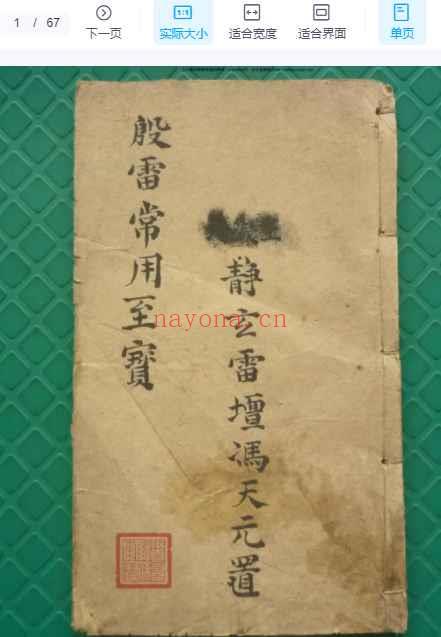 1 / 67
下一页
实际大小
适合宽度
适合界面
单页
殷雷常用至寶
靜玄雷壇馮天元置
nayona.cn